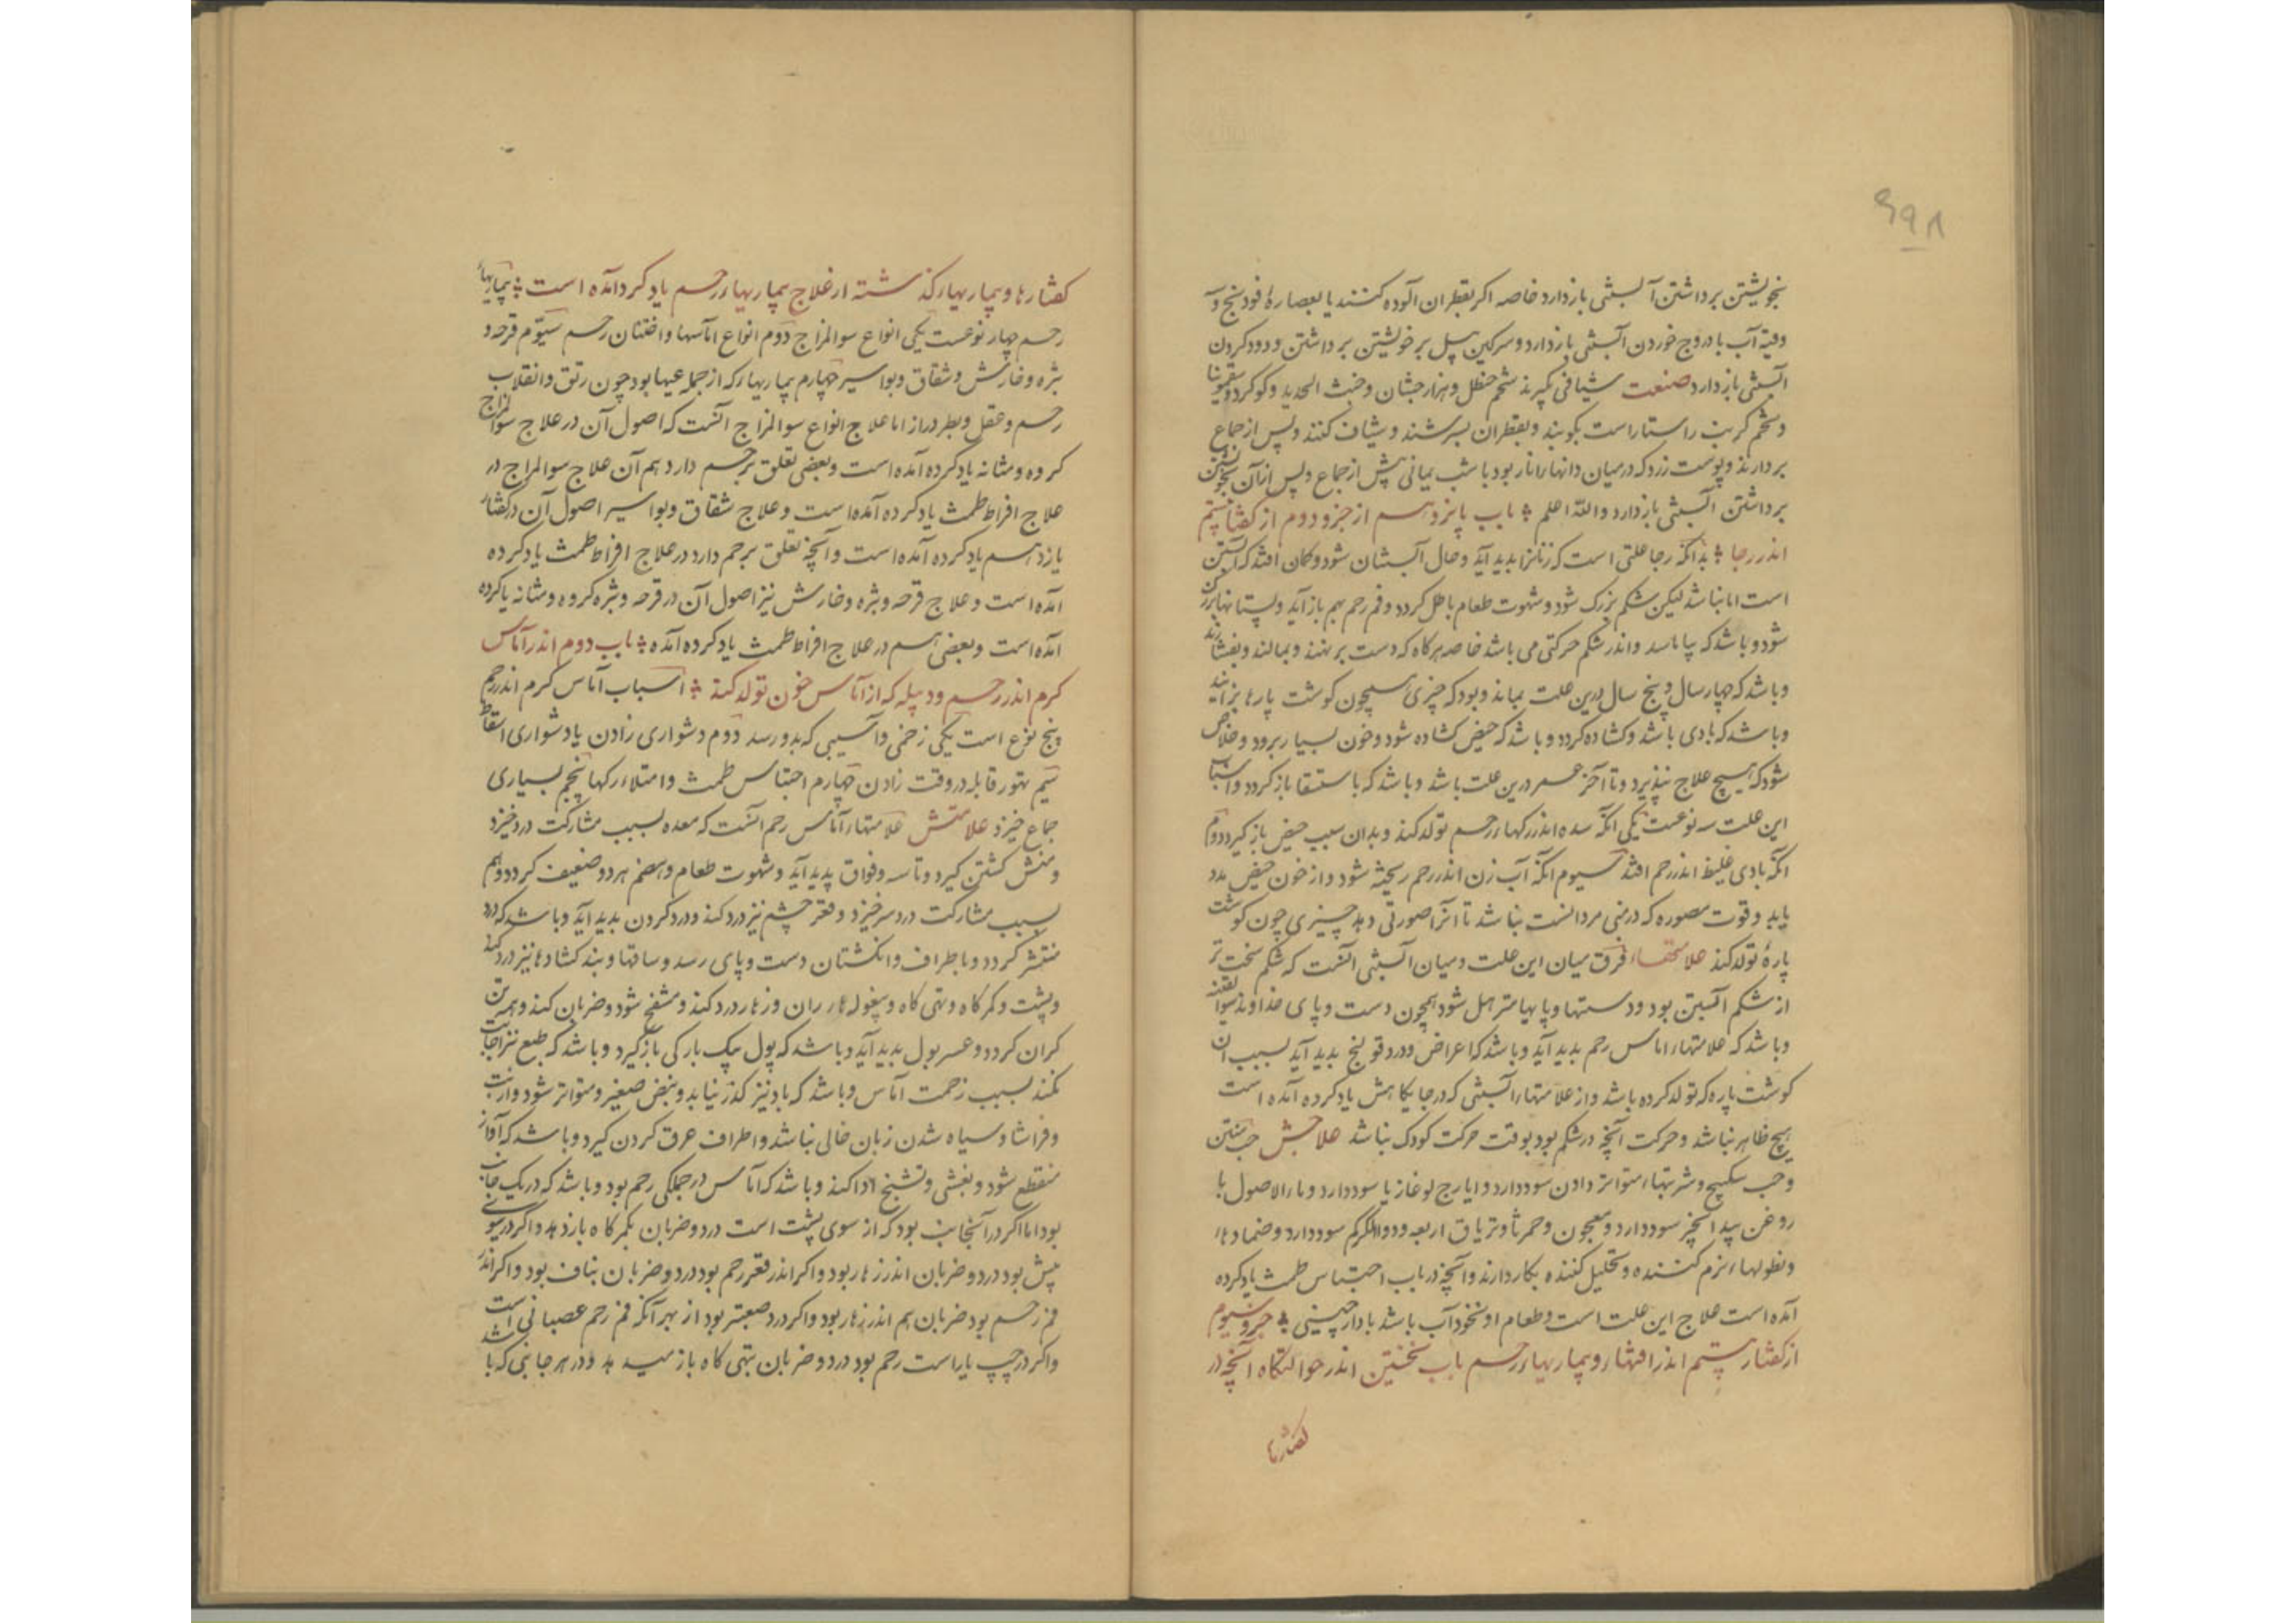 ۶۹۸
بخویشتن برداشتن آبستنی بازدارد خاصه اکر بقطران آلوده کنند یا بعصارهٔ فودنج و آ
وقیه آب بادروج خوردن آبستنی بازدارد و سرکین پیل بر خویشتن برداشتن و دود کردن
آبستنی بازدارد صنعت شیافی بکیرند شحم حنظل و هزارجشان و خبث الحدید و کوکرد و سقمونیا
و تخم کرنب راستاراست بکوبند و بقطران بسرشند و شیاف کنند و پس از جماع
بردارند و پوست زرد که در میان دانهاء انار بود با شب یمانی پیش از جماع و پس از آن بخویشتن
برداشتن آبستنی بازدارد والله اعلم باب پانزدهم از جزو دوم از کفتار بیستم
اندر رجا بدانکه رجا علتی است که زنانرا بدید آید و حال آبستنان شود و کمان افتد که آبستن
است اما نباشد لیکن شکم بزرک شود و شهوت طعام باطل کردد و فم رحم بهم باز آید و پستانها بزرک
شود و باشد که بیاماسد و اندر شکم حرکتی می باشد خاصه هرکاه که دست برنهند و بمالند و بفشارند
و باشد که چهار سال و پنج سال درین علت بماند و بود که چیزی همچون کوشت پارها بزایند
و باشد که بادی باشد و کشاده کردد و باشد که حیض کشاده شود و خون بسیار برود و خلاص
شود که هیچ علاج نپذیرد و تا آخر عمر درین علت باشد و باشد که باستسقا باز کردد و اسباب
این علت سه نوعست یکی آنکه سده اندر رکهاء رحم تولد کند و بدان سبب حیض باز کیرد دوم
آنکه بادی غلیظ اندر رحم افتد سیوم آنکه آب زن اندر رحم ریخته شود و از خون حیض مدد
یابد و قوت مصوره که در منی مردانست نباشد تا آنرا صورتی دهد چیزی چون کوشت
پارهٔ تولد کند علامتهاء فرق میان این علت و میان آبستنی آنست که شکم سخت تر
از شکم آبستن بود و دستها و پایها مترهل شود همچون دست و پای خداوند سوء القنیه
و باشد که علامتهاء اماس رحم بدید آید و باشد که اعراض و درد قولنج بدید آید بسبب آن
کوشت پاره که تولد کرده باشد و از علامتهاء آبستنی که در جایکاهش یاد کرده آمده است
هیچ ظاهر نباشد و حرکت آنچه در شکم بود بوقت حرکت کودک نباشد علاجش حب منتن
و حب سکبینج و شربتهاء متواتر دادن سود دارد و ایارج لوغازیا سود دارد و ماء الاصول با
روغن بیدانجیر سود دارد و معجون و تریاق اربعه و دواء الکرکم سود دارد و ضمادهاء
و نطولهاء نرم کننده و تحلیل کننده بکار دارند و آنچه در باب احتباس طمث یاد کرده
آمده است علاج این علت است و طعام او نخودآب باشد با دارچینی جزو سیوم
از کفتار بیستم اندر و بیماریهاء رحم باب نخستین اندر حوالتکاه آنچه در
کفتارها
کفتارها و بیماریهاء کذشته از علاج بیماریهاء رحم یاد کرد آمده است بیماریهاء
رحم چهار نوعست یکی انواع سوء المزاج دوم انواع اماسها و اختناق رحم سیوم قرحه و
بثره و خارش و شقاق و بواسیر چهارم بیماریهاء که از جمله عیبها بود چون رتق و انقلاب
رحم و عقل و بظر دراز اما علاج انواع سوء المزاج آنست که اصول آن در علاج سوء المزاج
کروه و مثانه یاد کرده آمده است و بعضی تعلق برحم دارد هم آن علاج سوء المزاج در
علاج افراط طمث یاد کرده آمده است و علاج شقاق و بواسیر اصول آن در کفتار
یازدهم یاد کرده آمده است و آنچه تعلق برحم دارد در علاج افراط طمث یاد کرده
آمده است و علاج قرحه و بثره و خارش نیز اصول آن در قرحه و بثره کروه و مثانه یاد کرده
آمده است و بعضی هم در علاج افراط طمث یاد کرده آمده باب دوم اندر آماس
کرم اندر رحم و دبیله که از آماس خون تولد کند اسباب آماس کرم اندر رحم
پنج نوع است یکی زخمی و آسیبی که بدو رسد دوم دشواری زادن یا دشواری اسقاط
سیم تهور قابله در وقت زادن چهارم احتباس طمث و امتلاء رکها پنجم بسیاری
جماع خیزد علامتش علامتهاء آماس رحم آنست که معده بسبب مشارکت درد خیزد
و منش کشتن کیرد و تاسه و فواق پدید آید و شهوت طعام و هضم هر دو ضعیف کردد و هم
بسبب مشارکت درد سر خیزد و قعر چشم نیز درد کند و درد کردن بدید آید و باشد که درد
منتشر کردد و باطراف و انکشتان دست و پای رسد و ساقها و بندکشادها نیز درد کند
و پشت و کمرکاه و تهی کاه و بیغولهاء ران و زهار درد کند و منتفخ شود و ضربان کند و همه تن
کران کردد و عسر بول بدید آید و باشد که بول بیک بارکی بازکیرد و باشد که طبع نیز اجابت
نکند بسبب زحمت آماس و باشد که باد نیز کذر نیابد و نبض صغیر و متواتر شود و از تب
و فراشا و سیاه شدن زبان خالی نباشد و اطراف عرق کردن کیرد و باشد که آواز
منقطع شود و بغشی و تشنج ادا کند و باشد که آماس در جملکی رحم بود و باشد که در یک جانب
بود اما اکر در آنجانب بود که از سوی پشت است درد و ضربان بکمرکاه باز دهد و اکر در سوی
پیش بود درد و ضربان اندر زهار بود و اکر اندر قعر رحم بود درد و ضربان بناف بود و اکر اندر
فم رحم بود ضربان هم اندر زهار بود و اکر درد صعبتر بود از بهر آنکه فم رحم عصبانی است
واکر در چپ یا راست رحم بود درد و ضربان بتهی کاه باز میدهد و در هر جانبی که باشد